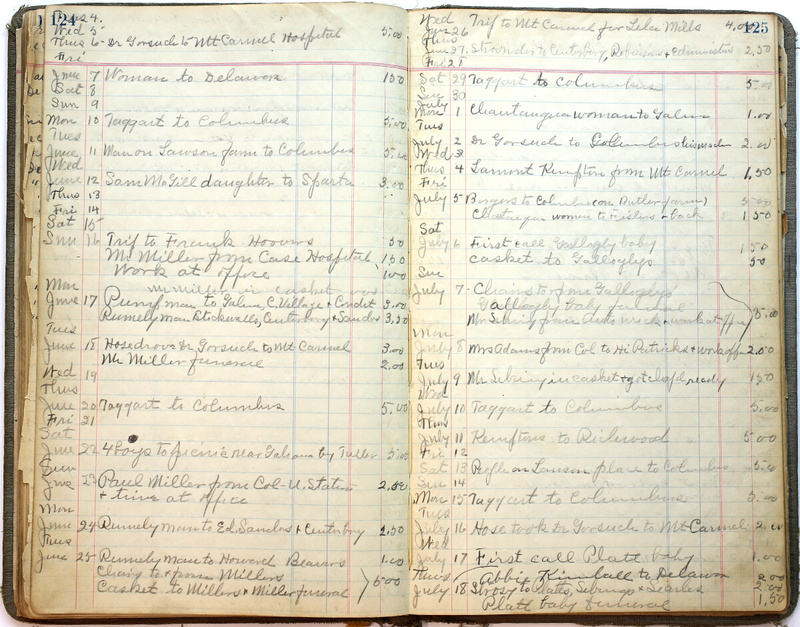 124
Wed 5
Thus 6 Dr Gorsuch to Mt Carmel Hospital 5.00
Fri
June 7 Woman to Delaware 150
Sat 8
Sun 9
Mon 10 Taggart to Columbus 5.00
Tues
June 11 Man on Lawson farm to Columbus
Wed
June 12 Sam McGill daughter to Sparta 3.00
Thus 13
Fri 14
Sat 15
Sun 16 Trip to Frank Hoovers 50
Mr Miller from Case Hospital 1.50
Work at office 100
Mr Miller in casket
Mon
June 17 man to Galena, C. Village & Condit 3.00
Rumely man Stockwells, Centerburg & Sandos 3.50
Tues
June 18 Hose drove Dr Gorsuch to Mt Carmel 3.00
Mr Miller funeral 2.00
Wed 19
Thus
June 20 Taggart to Columbus 5.00
Fri 21
Sat
June 22 4 boys to picnic near Gahana by Tuller 5.00
Sun
June 23 Paul Miller from Col-U. Station 2.50
& time at office
Mon
June 24 Rumely man to Ed. Sandos & Centerburg 2.50
Tues
June 25 Rumely man to Howard Beavers 1.00
Chairs to & from Millers
Casket to Millers & Miller funeral 5.00
125
Wed
June 26 Trip to Mt Carmel for Lelia Mills 4.00
Thus
June 27 to Centerburg, 2.50
Fri
Sat 29 Taggart to Columbus 5.00
Sun 30
July
Mon 1 Chautauqua woman to Galena 1.00
Tues
July 2 Dr Gorsuch to Columbus 2.00
Wed 3
Thus 4 Lamont Kempton from Mt Carmel 1.50
Fri
July 5 to Columbus (on Butler farm) 5.00
Chautauqua women to Fishers & back 1 50
Sat
July 6 First call Gallogly baby 1 50
casket to Galloglys 50
Sun
July 7 Chairs to & from Galloglys
Gallogly baby funeral
Mr Sebring from auto wreck & work at office 5.00
Mon
July 8 Mrs Adams from Col to Hi Patricks & work off 2.00
Tues
July 9 Mr Sebring in casket & got ready 150
Wed
July 10 Taggart to Columbus 5.00
Thus
July 11 Kemptons to Richwood 5.00
Fri 12
Sat 13 People on Lawson place to Columbus 5.00
Sun 14
Mon 15 Taggart to Columbus 5.00
Tues
July 16 Hose took Dr Gorsuch to Mt Carmel 2.00
Wed
July 17 First call Platt baby 1.00
Thus Abbie Kimball to Delaware 2.00
July 18 to Platts, Sebrings & Searles 2.00
Platt baby funeral 1,50